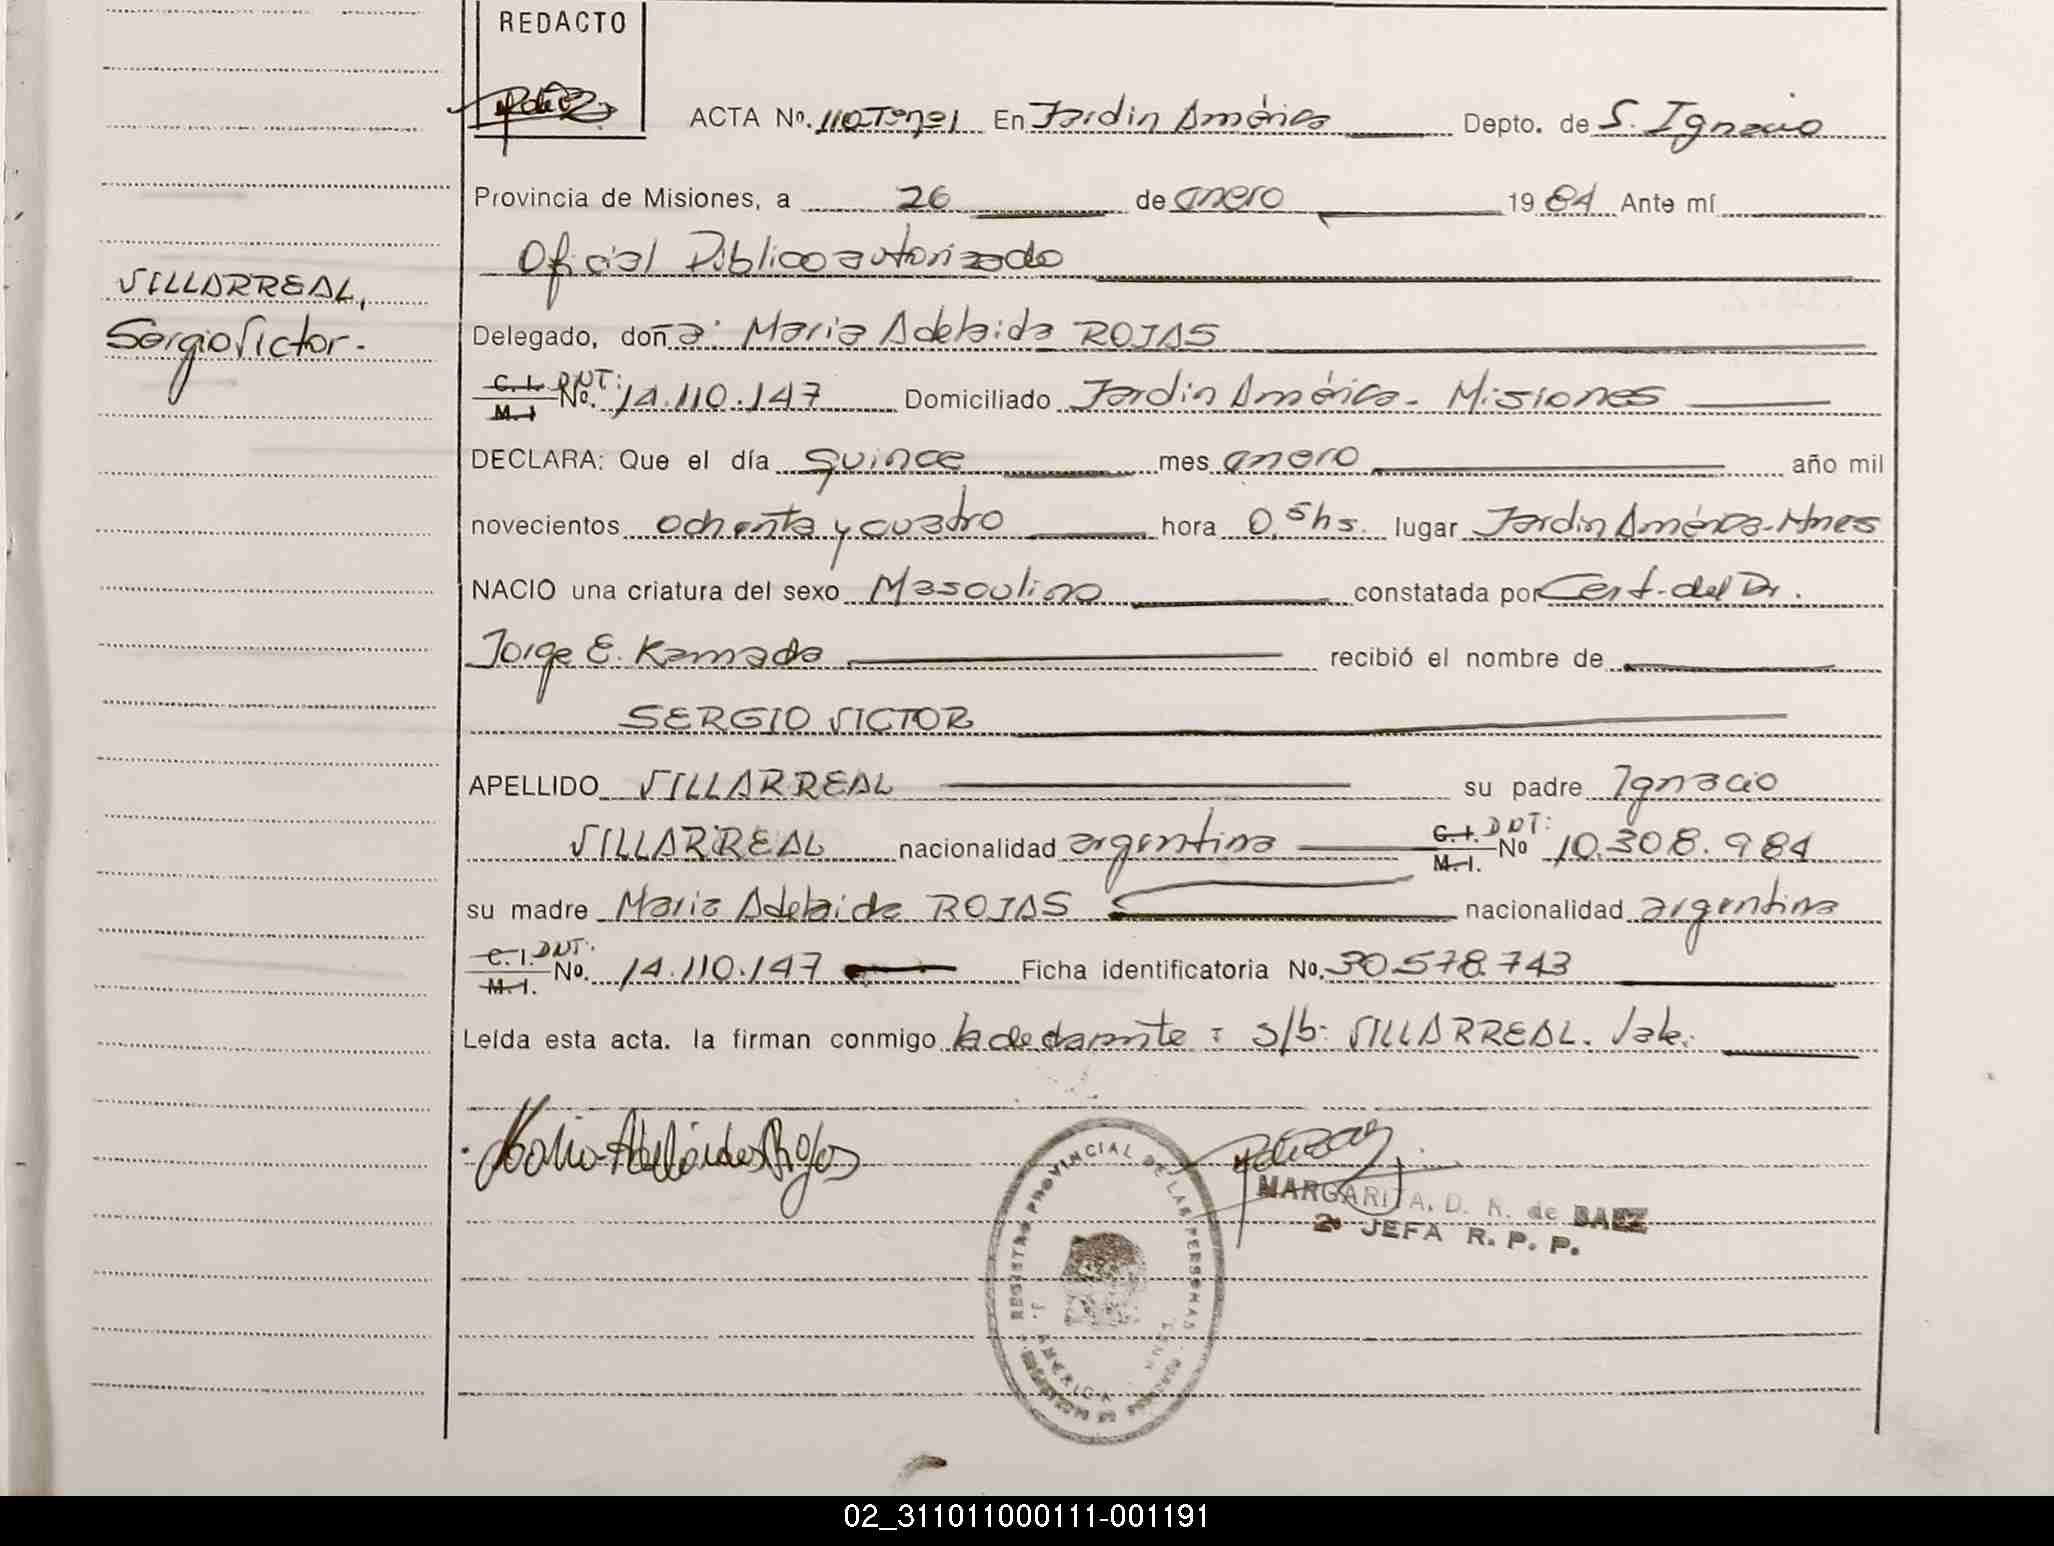 REDACTO
ACTA No. 110 Tomo I En Jardin América Depto. de S. Ignacio
Provincia de Misiones, a 26 de enero 1984 Ante mí
Oficial Público autorizado
VILLARREAL,
Sergio Victor.-
Delegado, doña: Maria Adelaida ROJAS
C. I. M. I DNI: No. 14.110.147 Domiciliado Jardin América - Misiones
DECLARA: Que el día quince mes enero año mil
novecientos ochenta y cuatro hora 0,5hs. lugar Jardin América - Mnes
NACIO una criatura del sexo Masculino constatada por Cert. del Dr.
Jorge E. Kamada recibió el nombre de
SERGIO VICTOR
APELLIDO VILLARREAL su padre Ignacio
VILLARREAL nacionalidad argentina C. I. M. I. DNI: No 10.308.984
su madre Maria Adelaida ROJAS nacionalidad argentina
C. I. M. I. DNI: No. 14.110.147 Ficha identificatoria No. 30.578.743
Leída esta acta. la firman conmigo la declarante : s/b: VILLARREAL. Vale.
Maria Adelaida Rojas
REGISTRO PROVINCIAL DE LAS PERSONAS
AMERICA
MARGARITA, D. R. de BAEZ
2ª JEFA R. P. P.
02_311011000111-001191